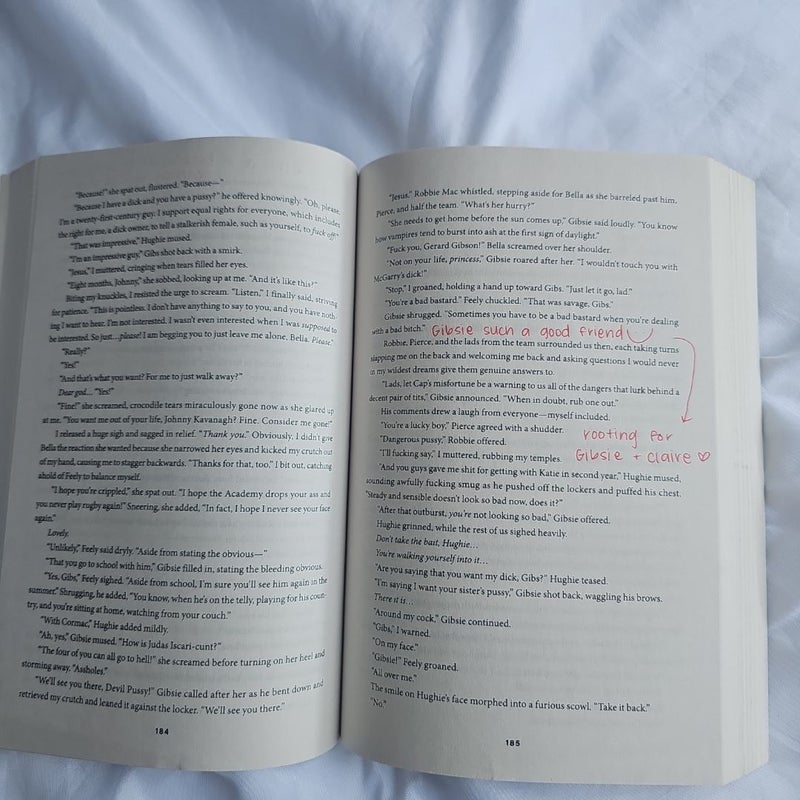 "Because!" she spat out, flustered. "Because—"
"Because I have a dick and you have a pussy?" he offered knowingly. "Oh, please.
I'm a twenty-first-century guy. I support equal rights for everyone, which includes
the right for me, a dick owner, to tell a stalkerish female, such as yourself, to fuck off."
"That was impressive," Hughie mused.
"I'm an impressive guy," Gibs shot back with a smirk.
"Jesus," I muttered, cringing when tears filled her eyes.
"Eight months, Johnny," she sobbed, looking up at me. "And it's like this?"
Biting my knuckles, I resisted the urge to scream. "Listen," I finally said, striving
for patience. "This is pointless. I don't have anything to say to you, and you have noth-
ing I want to hear. I'm not interested. I wasn't even interested when I was supposed to
be interested. So just...please! I am begging you to just leave me alone, Bella. Please."
"Really?"
"Yes!"
"And that's what you want? For me to just walk away?"
Dear god... "Yes!"
"Fine!" she screamed, crocodile tears miraculously gone now as she glared up
at me. "You want me out of your life, Johnny Kavanagh? Fine. Consider me gone!"
I released a huge sigh and sagged in relief. "Thank you." Obviously, I didn't give
Bella the reaction she wanted because she narrowed her eyes and kicked my crutch out
of my hand, causing me to stagger backwards. "Thanks for that, too," I bit out, catching
ahold of Feely to balance myself.
"I hope you're crippled," she spat out. "I hope the Academy drops your ass and
you never play rugby again!" Sneering, she added, "In fact, I hope I never see your face
again."
Lovely.
"Unlikely," Feely said dryly. "Aside from stating the obvious—"
"That you go to school with him," Gibsie filled in, stating the bleeding obvious.
"Yes, Gibs," Feely sighed. "Aside from school, I'm sure you'll see him again in the
summer." Shrugging, he added, "You know, when he's on the telly, playing for his coun-
try, and you're sitting at home, watching from your couch."
"With Cormac," Hughie added mildly.
"Ah, yes," Gibsie mused. "How is Judas Iscari-cunt?"
"The four of you can all go to hell!" she screamed before turning on her heel and
storming away. "Assholes."
"We'll see you there, Devil Pussy!" Gibsie called after her as he bent down and
retrieved my crutch and leaned it against the locker. "We'll see you there."
184
"Jesus," Robbie Mac whistled, stepping aside for Bella as she barreled past him,
Pierce, and half the team. "What's her hurry?"
"She needs to get home before the sun comes up," Gibsie said loudly. "You know
how vampires tend to burst into ash at the first sign of daylight."
"Fuck you, Gerard Gibson!" Bella screamed over her shoulder.
"Not on your life, princess," Gibsie roared after her. "I wouldn't touch you with
McGarry's dick!"
"Stop," I groaned, holding a hand up toward Gibs. "Just let it go, lad."
"You're a bad bastard." Feely chuckled. "That was savage, Gibs."
Gibsie shrugged. "Sometimes you have to be a bad bastard when you're dealing
with a bad bitch." Gibsie such a good friend
Robbie, Pierce, and the lads from the team surrounded us then, each taking turns
slapping me on the back and welcoming me back and asking questions I would never
in my wildest dreams give them genuine answers to.
"Lads, let Cap's misfortune be a warning to us all of the dangers that lurk behind a
decent pair of tits," Gibsie announced. "When in doubt, rub one out."
His comments drew a laugh from everyone—myself included.
"You're a lucky boy," Pierce agreed with a shudder. rooting for
"Dangerous pussy," Robbie offered.
"I'll fucking say," I muttered, rubbing my temples. Gibsie + Claire ♡
"And you guys gave me shit for getting with Katie in second year," Hughie mused,
sounding awfully fucking smug as he pushed off the lockers and puffed his chest.
"Steady and sensible doesn't look so bad now, does it?"
"After that outburst, you're not looking so bad," Gibsie offered.
Hughie grinned, while the rest of us sighed heavily.
Don't take the bait, Hughie...
You're walking yourself into it...
"Are you saying that you want my dick, Gibs?" Hughie teased.
"I'm saying I want your sister's pussy," Gibsie shot back, waggling his brows.
There it is...
"Around my cock," Gibsie continued.
"Gibs," I warned.
"On my face."
"Gibsie!" Feely groaned.
"All over me."
The smile on Hughie's face morphed into a furious scowl. "Take it back."
"No."
185